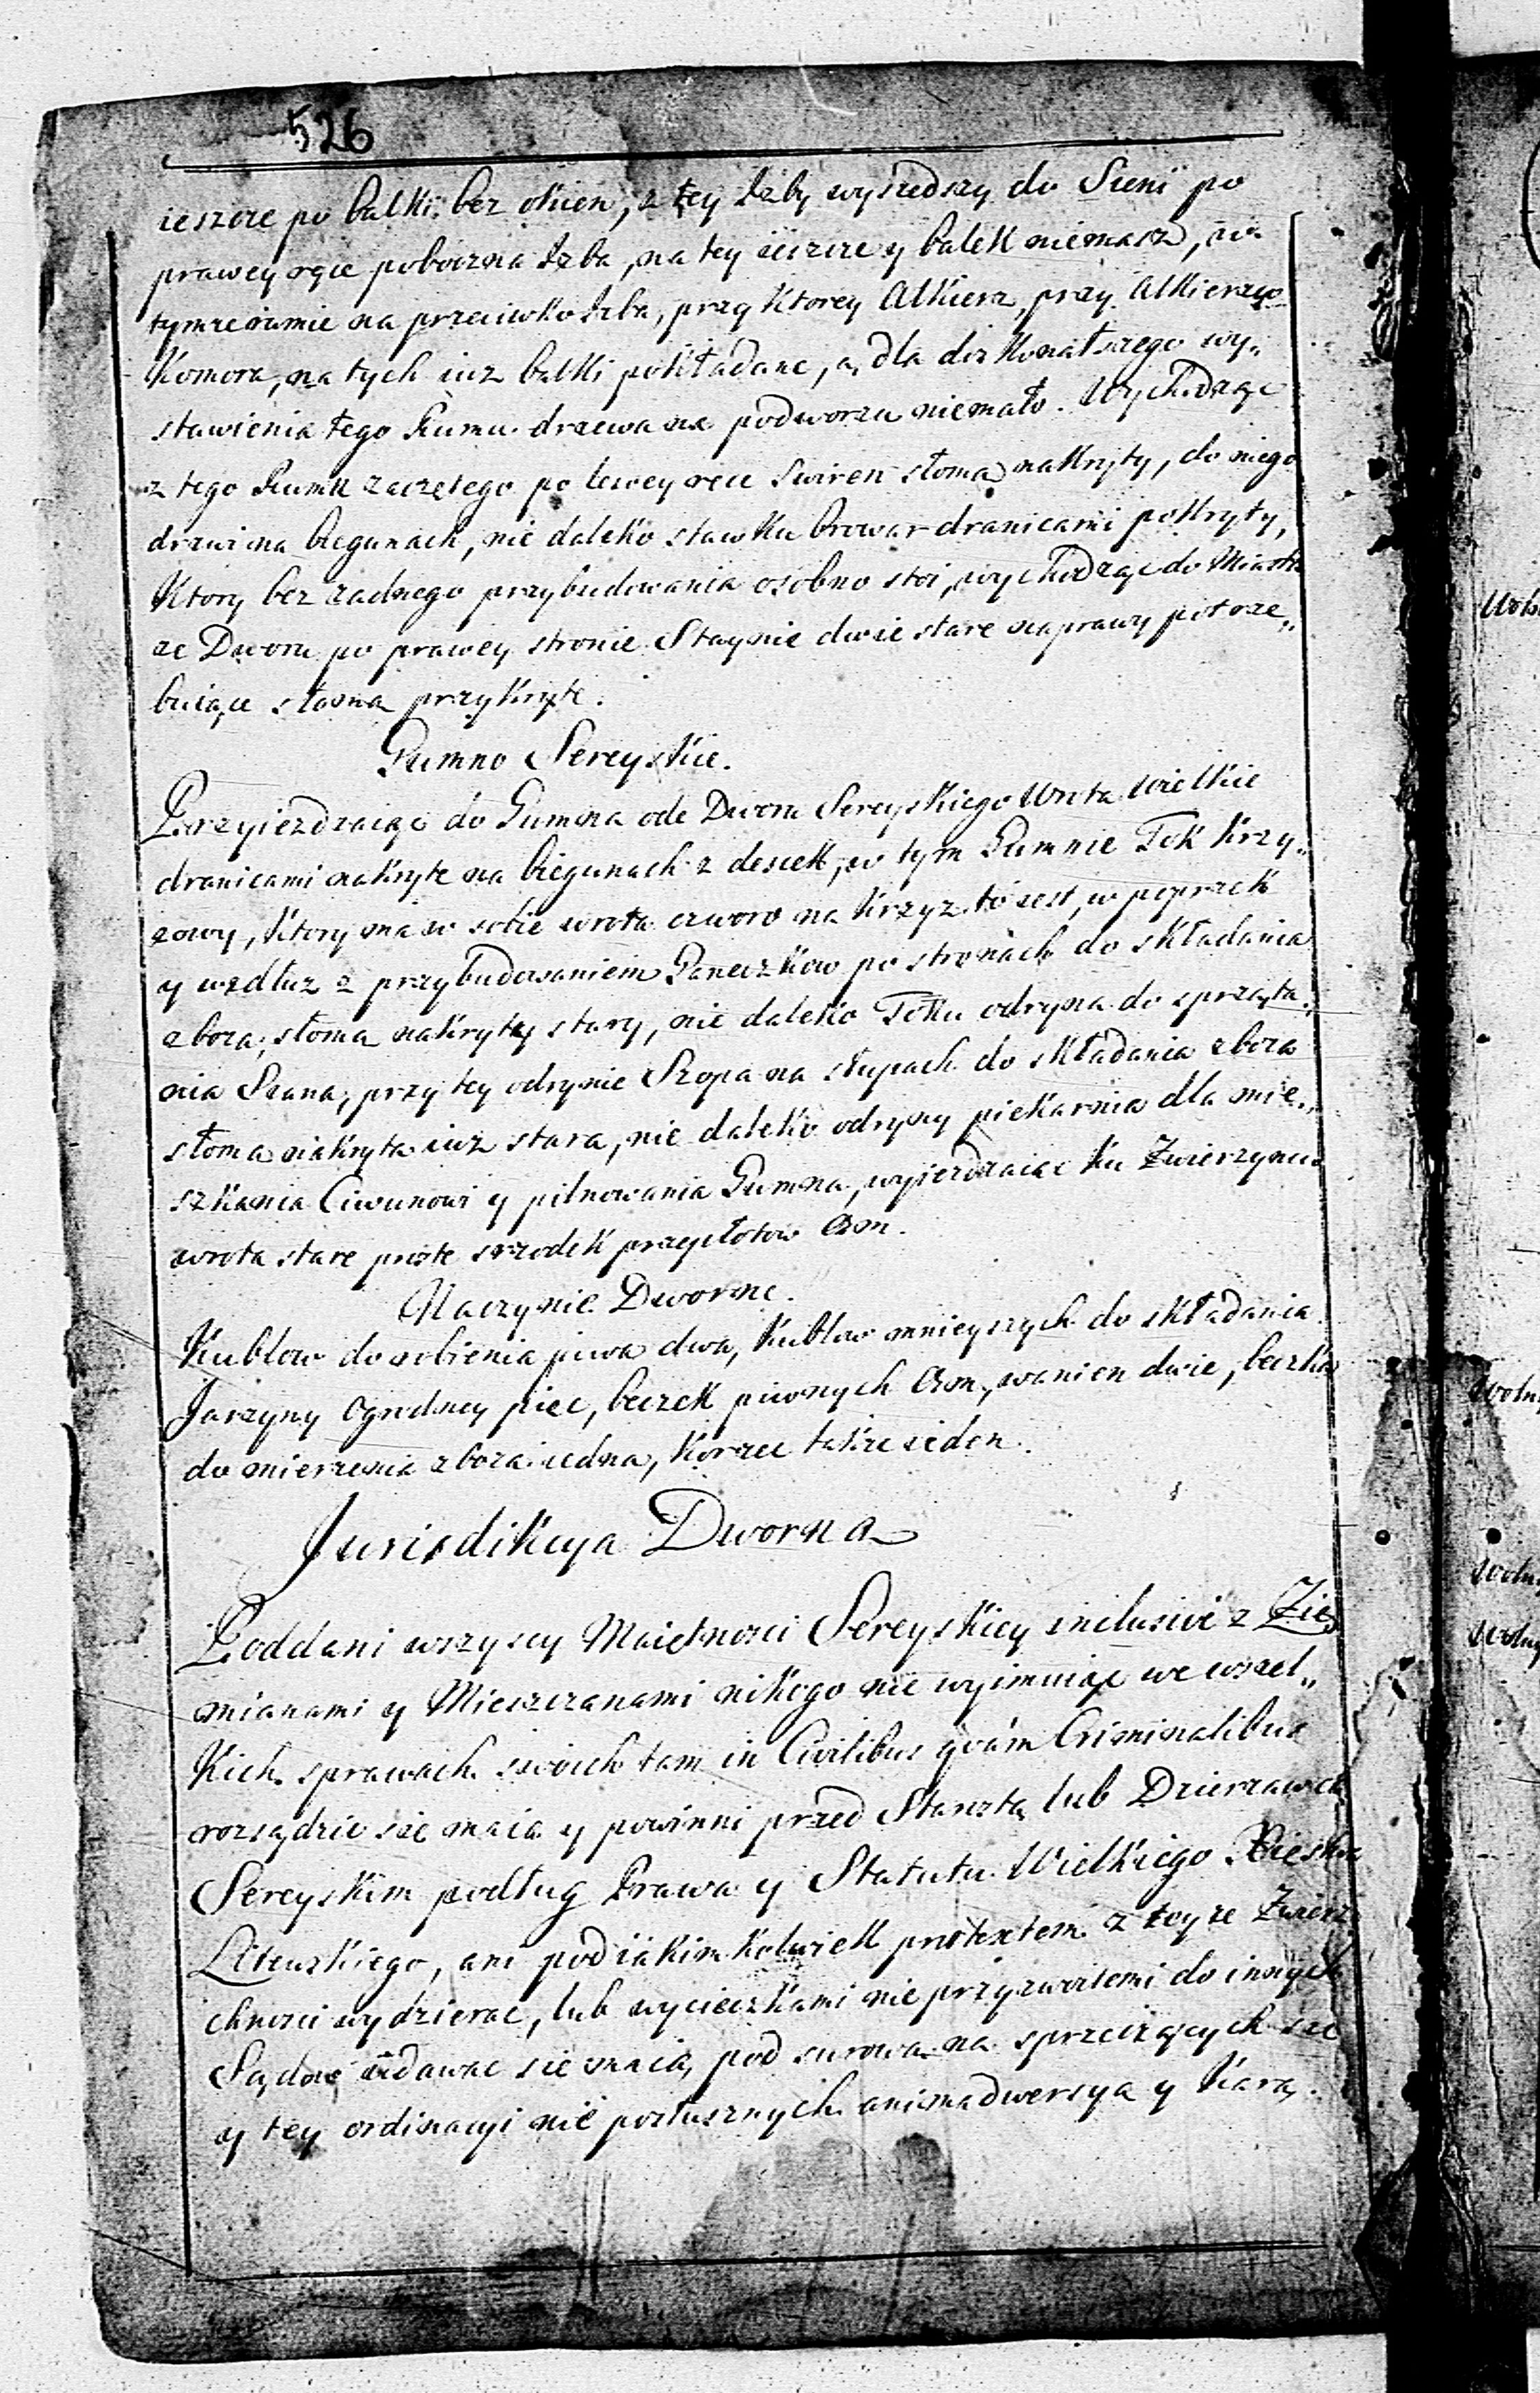 526
ieszcze po balki bez okien, z tey Izby wyszedszy do Sieni po
prawey ręce poboczna Izba, na tey ieszcze y balek niemasz, w
tymze rumie na przeciwko Izba, przy Ktorey Alkierz, przy Alkierzyo
Komora, na tych iuz balki pokładane, a dla doskonalszego wy„
stawienia tego Rumu drzewa na podworzu niemało. Wychodząc
z tego Rumu zaczętego po lewey ręce Swiren słomą nakryty, do niego
drzwi na biegunach, nie daleko stawku browar dranicami pokryty,
Ktory bez zadnego przybudowania osobno stoi, wychodząc do Miasta
ze Dworu po prawey stronie Staynie dwie stare naprawy potrze„
buiące słoma przykryte.
Gumno Sereyskie.
Przyiezdzaiąc do Gumna ode Dworu Sereyskiego Wrota Wielkie
dranicami nakryte na biegunach z desek, w tym Gumnie Tok Krzy„
zowy, Ktory ma w sobie wrota czworo na Krzyz to iest, w poprzek
y wzdłuz z przybudowaniem Paneczkow po stronach do składania
zboza, słoma nakryty stary, nie daleko Toku odryna do sprząta„
nia Siana, przy tey odrynie Szopa na słupach do składania zboza
słoma nakryta iuz stara, nie daleko odryny piekarnia dla mie„
szkania Ciwunowi y pilnowania Gumna, wyiezdzaiąc ku Zwierzyncu
wrota stare proste szrodek przepłotow Osm.
Naczynie Dworne.
Kublow do robienia piwa dwa, Kublow mnieyszych do składania
Jarzyny Ogrodney pięc, beczek piwnych Osm, wanien dwie, beczka
do mierzenia zboza iedna, Korzec takze ieden.
Jurisdikcya Dworna
Poddani wszyscy Maiętnosci Sereyskiey inclusive z Zie„
mianami y Mieszczanami nikogo nie wyimuiąc we wszel„
kich sprawach swoich tam in Civilibus qvám Criminalibus
rozsądzic się maią y powinni przed Starostą lub Dzierzawcą
Sereyskim podług Prawa y Statutu Wielkiego Xięstwa
Litewskiego, ani pod iakimkolwiek protextem z teyze Zwierz
chnosci wydzierac, lub wycieczkami nie przyzwoitemi do innych
Sądow udawac się maią, pod surową na sprzeciząjących się
y tey ordinacyi nie posłusznych animadwersyą y Karą.